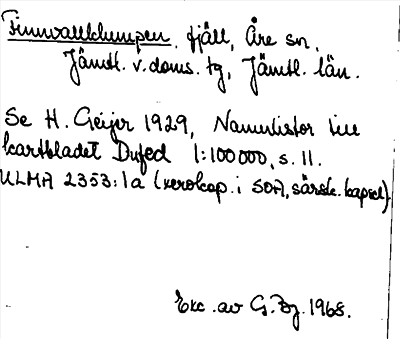 Finnvallklumpen. fjäll, Åre sn.
Jämtl. v. doms. tg, Jämtl. län.
Se H. Geijer 1929, Namnlistor till
kartbladet Dufed 1:100000, s. 11.
ULMA 2353:1a (xerokop. i SOA, särsk. kapsel).
Exc. av G. Bj. 1968.